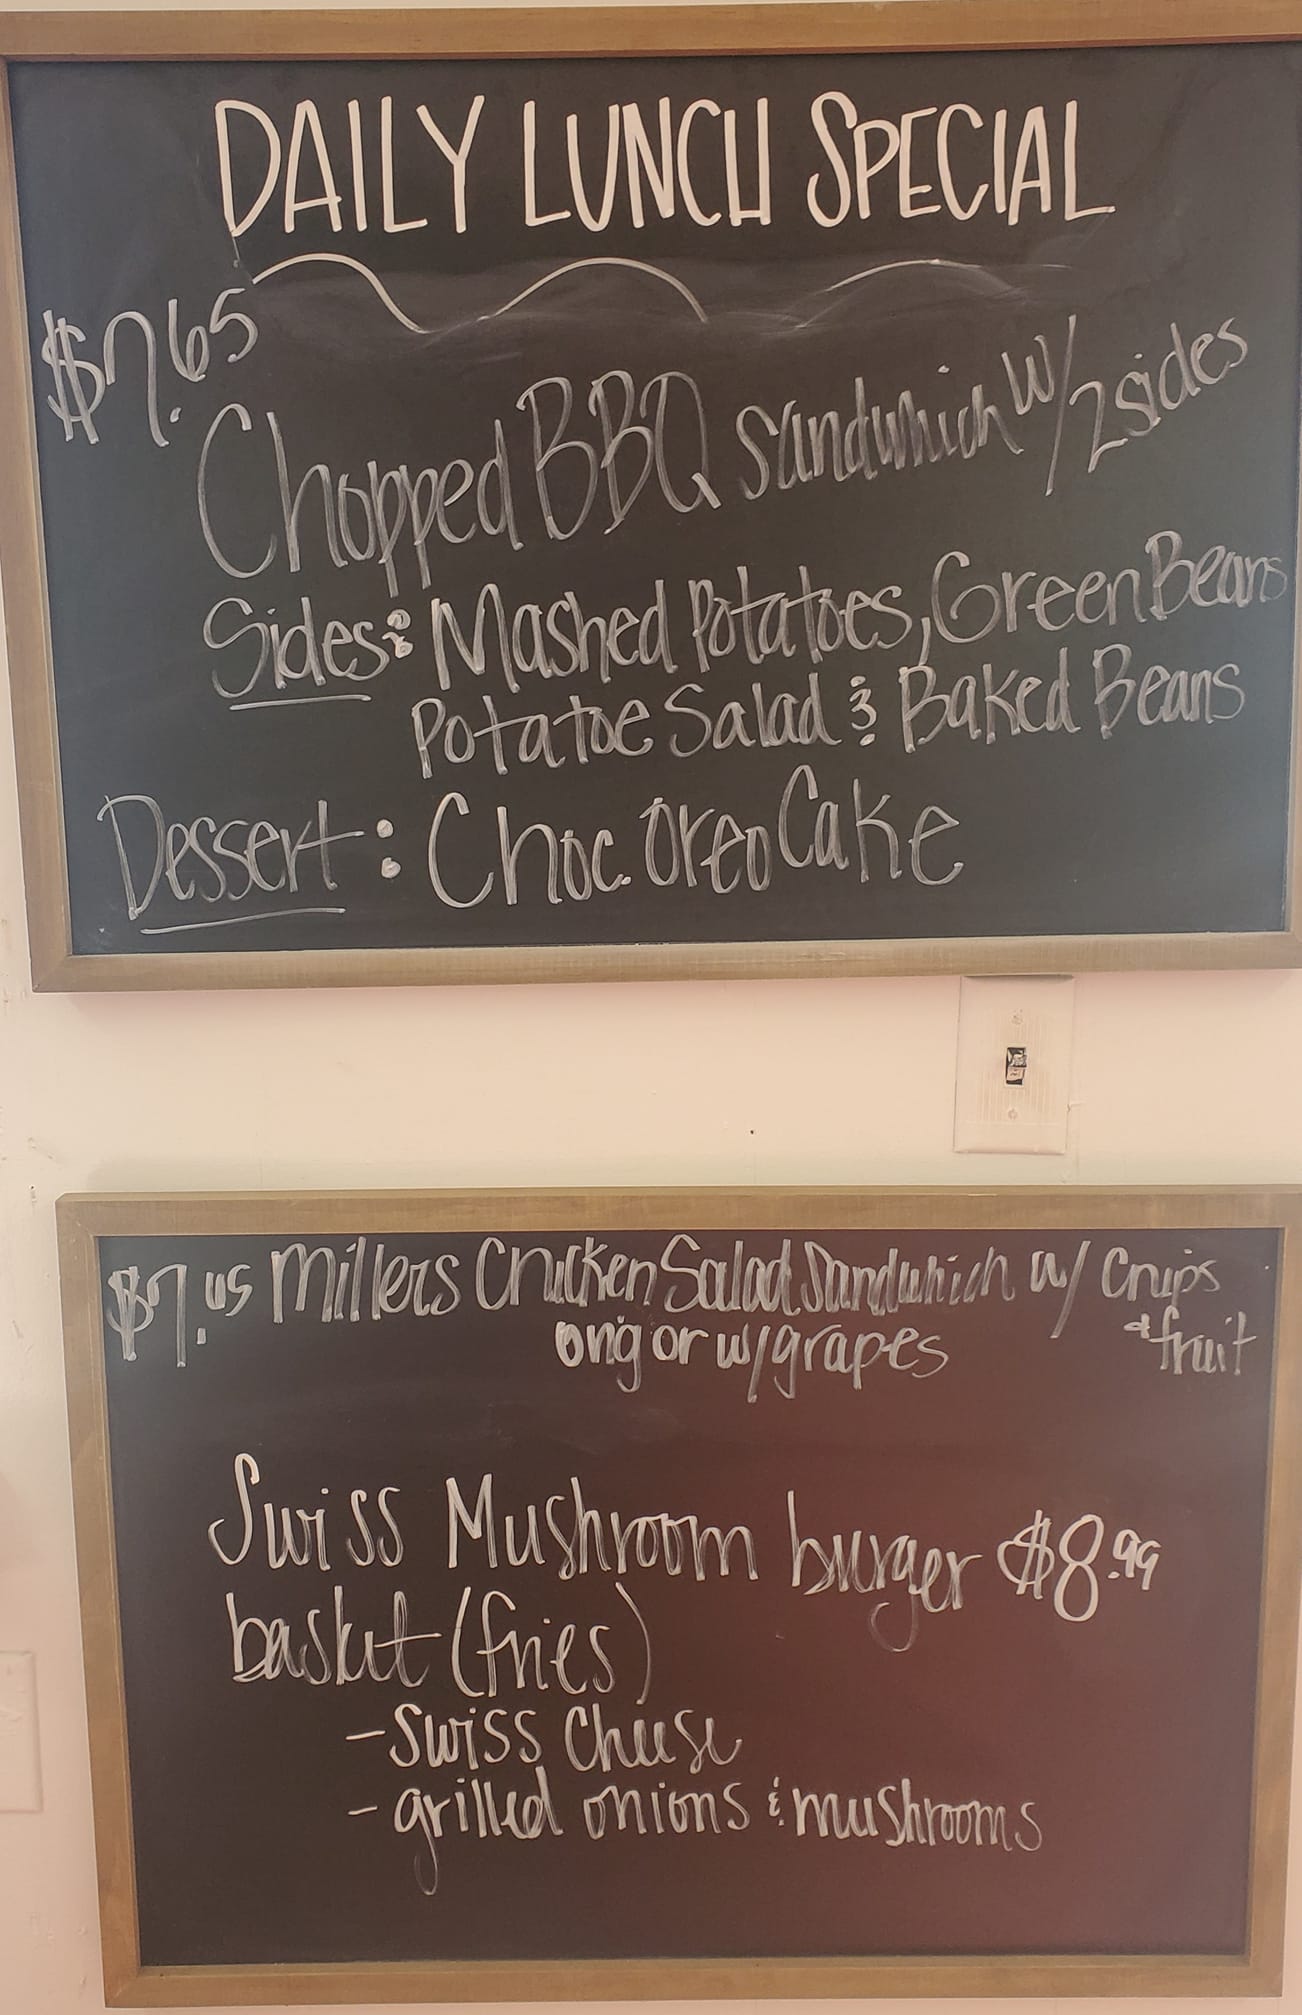 DAILY LUNCH SPECIAL
$7.65
Chopped BBQ Sandwhich w/ 2 sides
Sides: Mashed Potatoes, Green Beans
Potatoe Salad & Baked Beans
Dessert: Choc. Oreo Cake
Millers Chicken Salad Sandwhich w/ Chips
ong or w/ grapes & fruit
Swiss Mushroom burger $8.99
basket (fries)
- Swiss Cheese
- grilled onions & mushrooms